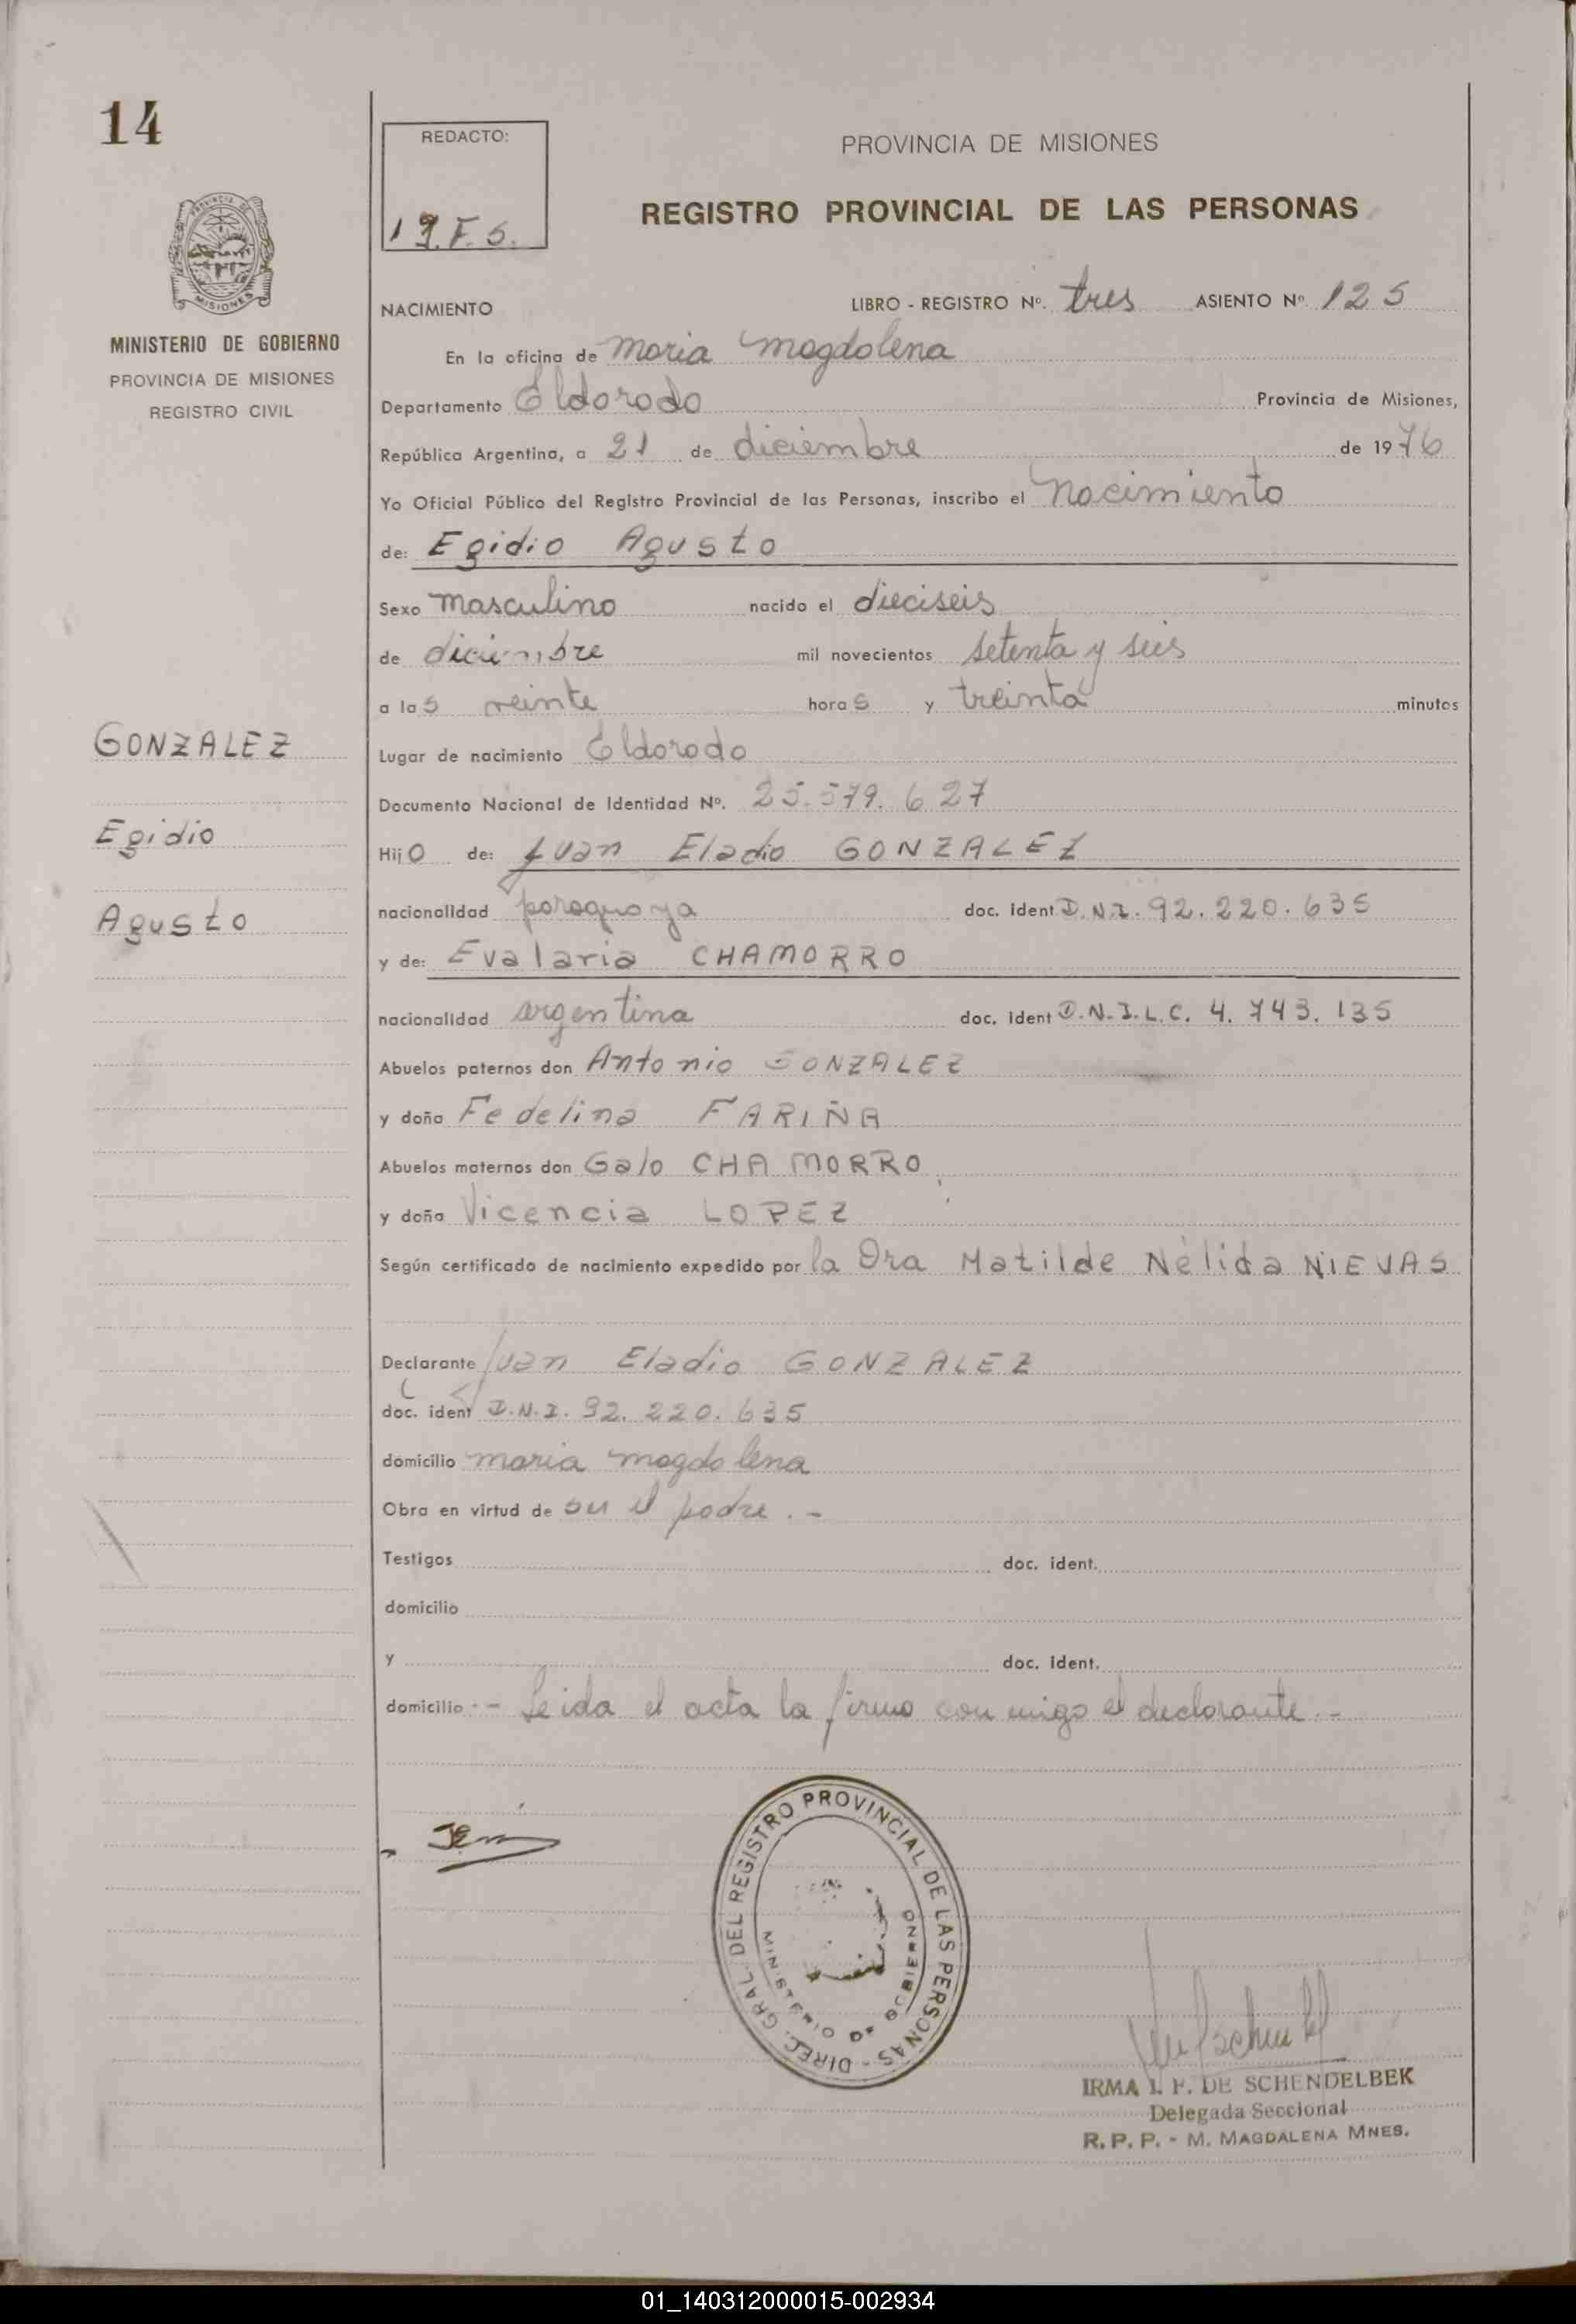 14
REDACTO:
19.F.S.
PROVINCIA DE MISIONES
REGISTRO PROVINCIAL DE LAS PERSONAS
MISIONES
MINISTERIO DE GOBIERNO
PROVINCIA DE MISIONES
REGISTRO CIVIL
NACIMIENTO
LIBRO - REGISTRO Nº. tres ASIENTO Nº. 125
En la oficina de Maria Magdalena
Departamento Eldorado Provincia de Misiones,
República Argentina, a 21 de diciembre de 1976
Yo Oficial Público del Registro Provincial de las Personas, inscribo el Nacimiento
de: Egidio Agusto
Sexo masculino nacido el dieciseis
de diciembre mil novecientos setenta y seis
a las veinte horas y treinta minutos
GONZALEZ
Lugar de nacimiento Eldorado
Documento Nacional de Identidad Nº. 25.579.627
Egidio
Hijo de: Juan Eladio GONZALEZ
Agusto
nacionalidad paraguaya doc. ident D.N.I. 92.220.635
y de: Evalaria CHAMORRO
nacionalidad argentina doc. ident D.N.I.L.C. 4.743.135
Abuelos paternos don Antonio GONZALEZ
y doña Fedelina FARIÑA
Abuelos maternos don Galo CHAMORRO
y doña Vicencia LOPEZ
Según certificado de nacimiento expedido por la Dra Matilde Nélida NIEVAS
Declarante Juan Eladio GONZALEZ
doc. ident D.N.I. 92.220.635
domicilio Maria Magdalena
Obra en virtud de ser el padre.-
Testigos doc. ident.
domicilio
y doc. ident.
domicilio -- Leida el acta la firma con migo el declarante.-
DIREC. GRAL. DEL REGISTRO PROVINCIAL DE LAS PERSONAS -
MINISTERIO DE GOBIERNO
IRMA I. F. DE SCHENDELBEK
Delegada Seccional
R. P. P. - M. MAGDALENA MNES.
01_140312000015-002934